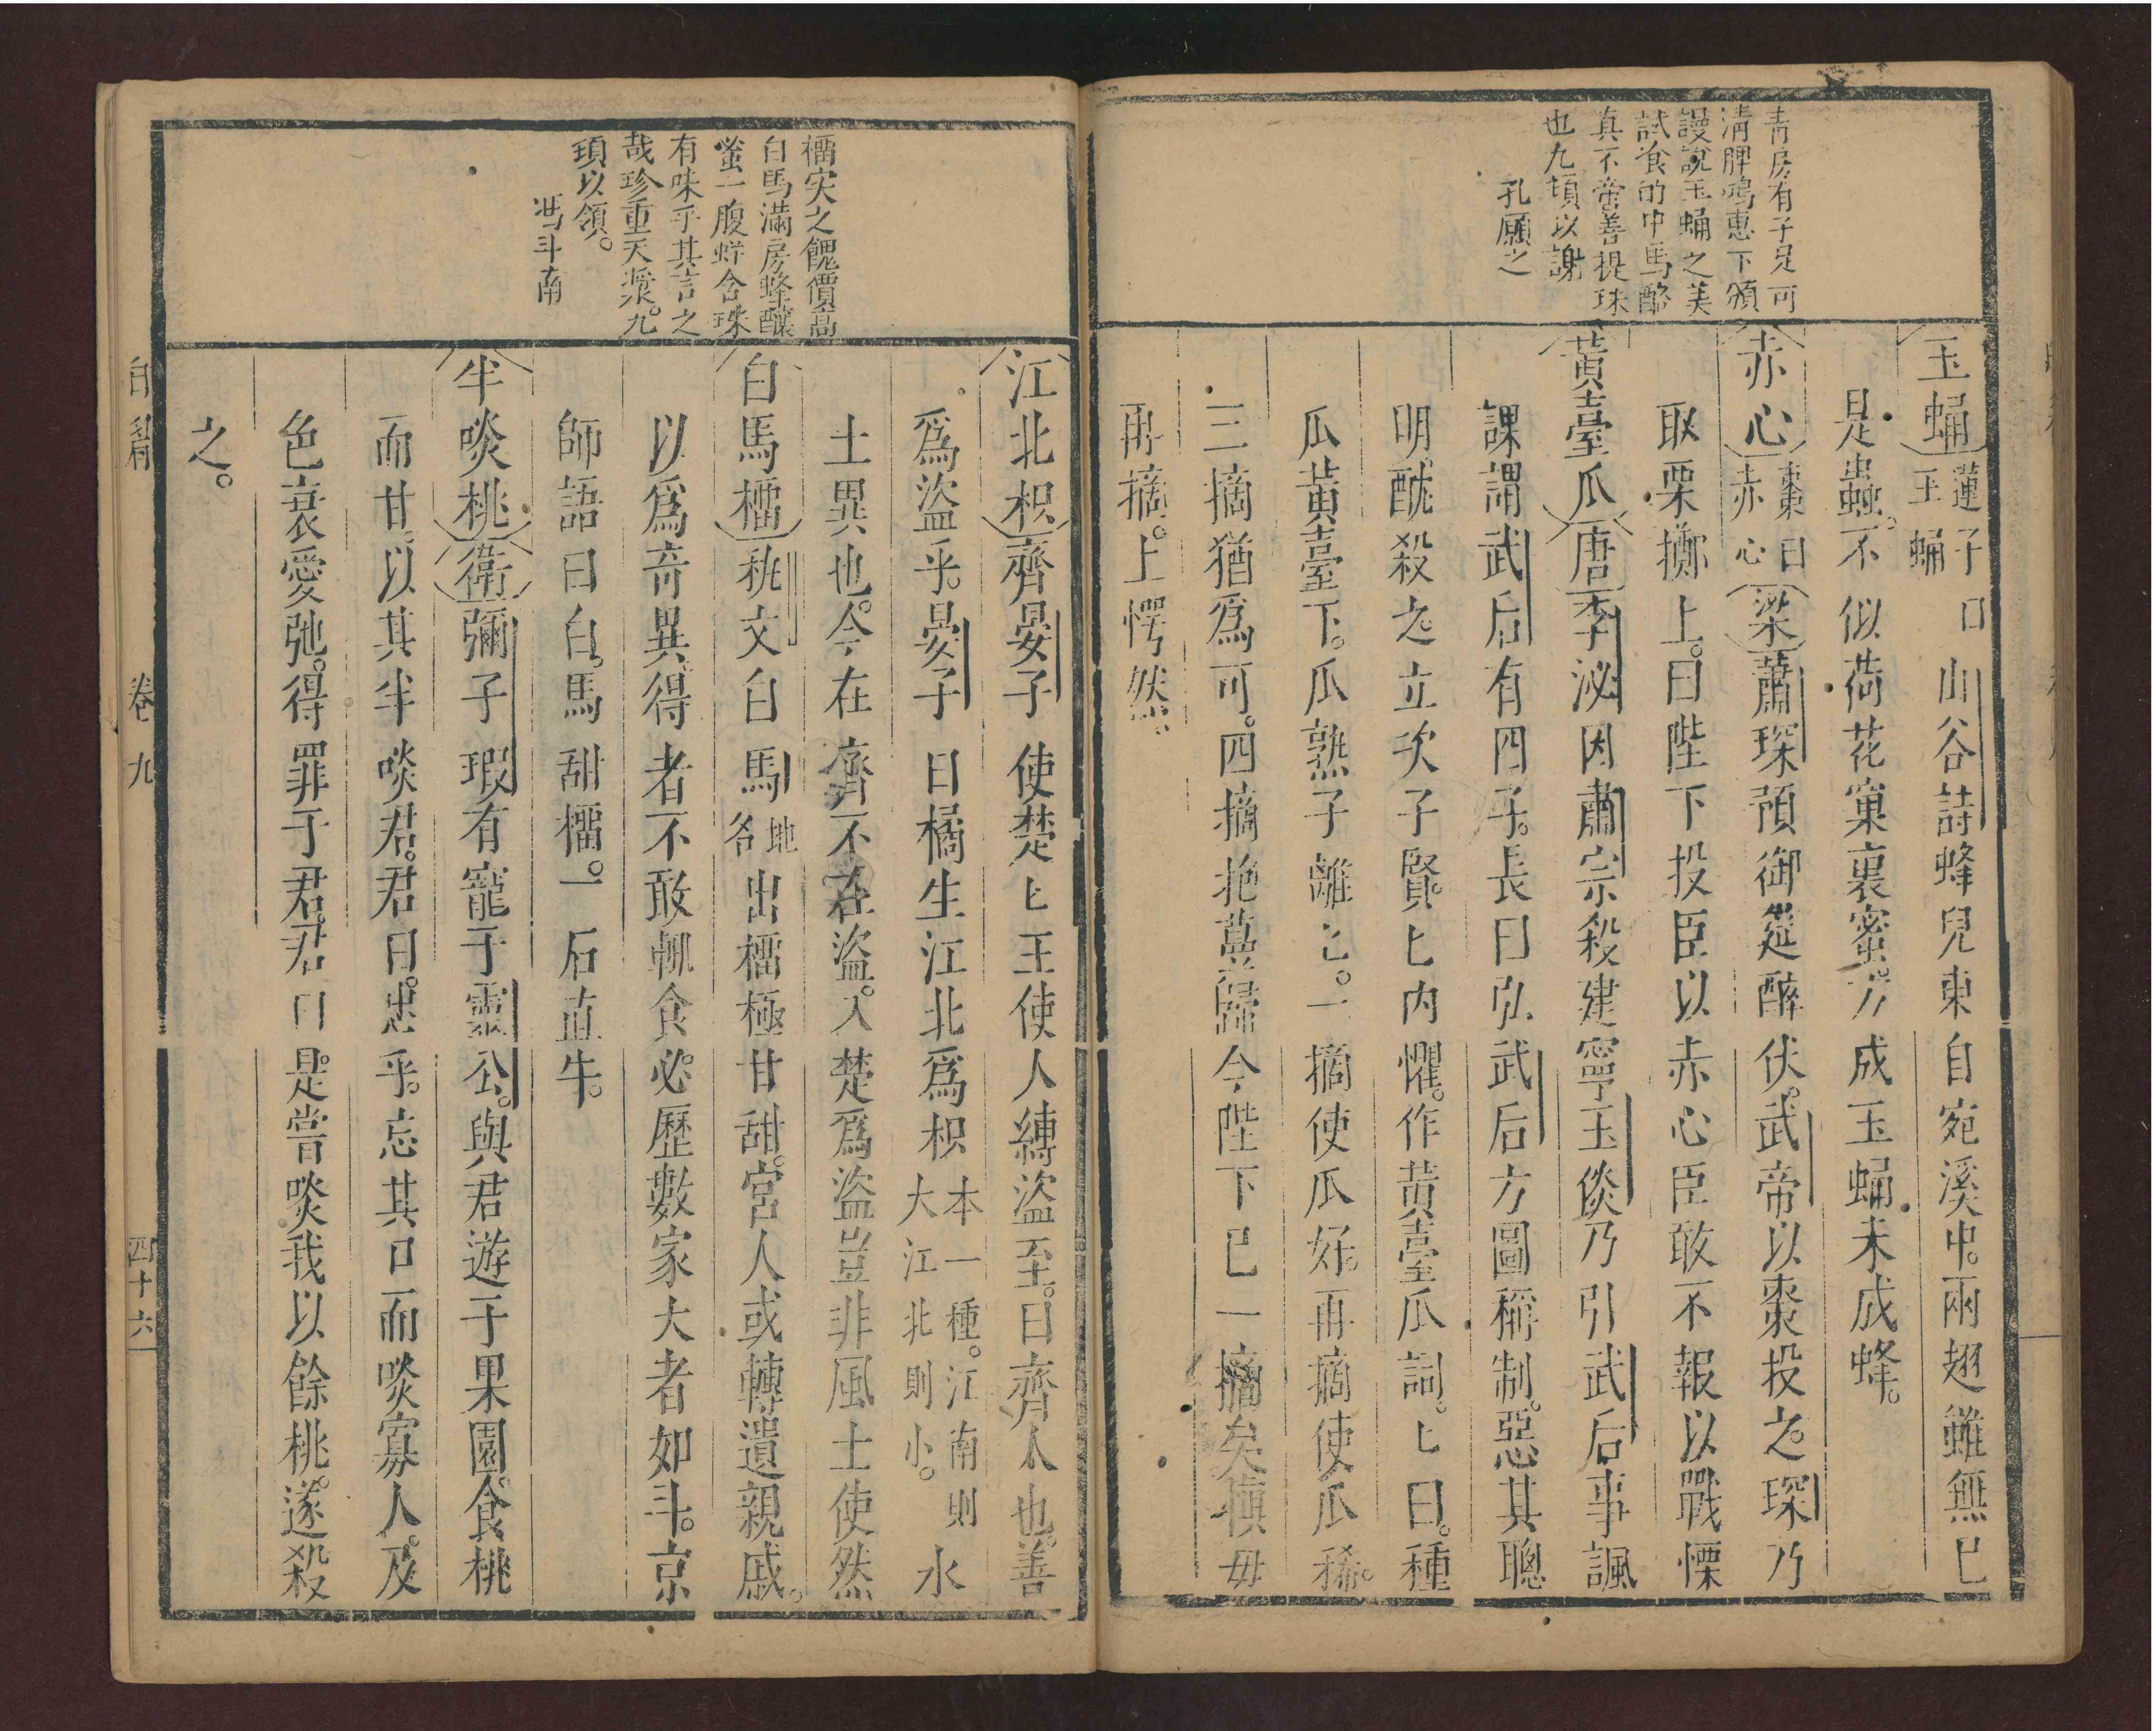 青房有子足可
清脾鴻惠下頒
謾說玉蛹之美
試飡的中馬酪
真不啻善提珠
也九頓以謝
孔願之
玉蛹蓮子曰玉蛹山谷詩蜂兒東自宛溪中。兩翅雖無已
是蟲。不似荷花窠裏蜜。方成玉蛹未成蜂。
赤心棗曰赤心梁蕭琛預御筵醉伏。武帝以棗投之。琛乃
取栗擲上。曰陛下投臣以赤心臣敢不報以戰慄
黃臺瓜唐李泌因肅宗殺建寧王倓乃引武后事諷
課謂武后有四子。長曰弘武后方圖稱制。惡其聰
明。酖殺之。立次子賢。匕內懼。作黃臺瓜詞。匕曰。種
瓜黃臺下。瓜熟子離匕。一摘使瓜好。再摘使瓜稀。
三摘猶爲可。四摘抱蔓歸今陛下已一摘矣慎毋
再摘。上愕然
櫺实之餽價高
白馬滿房蜂釀
蜜一腹蚌含珠
有味乎其言之
哉珍重天漿。九
頓以領。
馮斗南
江北枳齊晏子使楚匕王使人縛盜至。曰齊人也。善
爲盜乎。晏子曰橘生江北爲枳本一種。江南則大江北則小。水
土異也。今在齊不在盜。入楚爲盜豈非風土使然
白馬櫺秇文白馬地名出櫺極甘甜。宮人或轉遺親戚。
以爲奇異。得者不敢輒食。必歷數家大者如斗。京
師語曰白。馬甜櫺。一石直牛。
半啖桃衛彌子瑕有寵于靈公。與君遊于果園。食桃
而甘。以其半啖君。君曰。忠乎。忘其口而啖寡人。及
色衰愛弛。得罪于君。君曰是。嘗啖我以餘桃。遂殺
之。
卷九
四十六